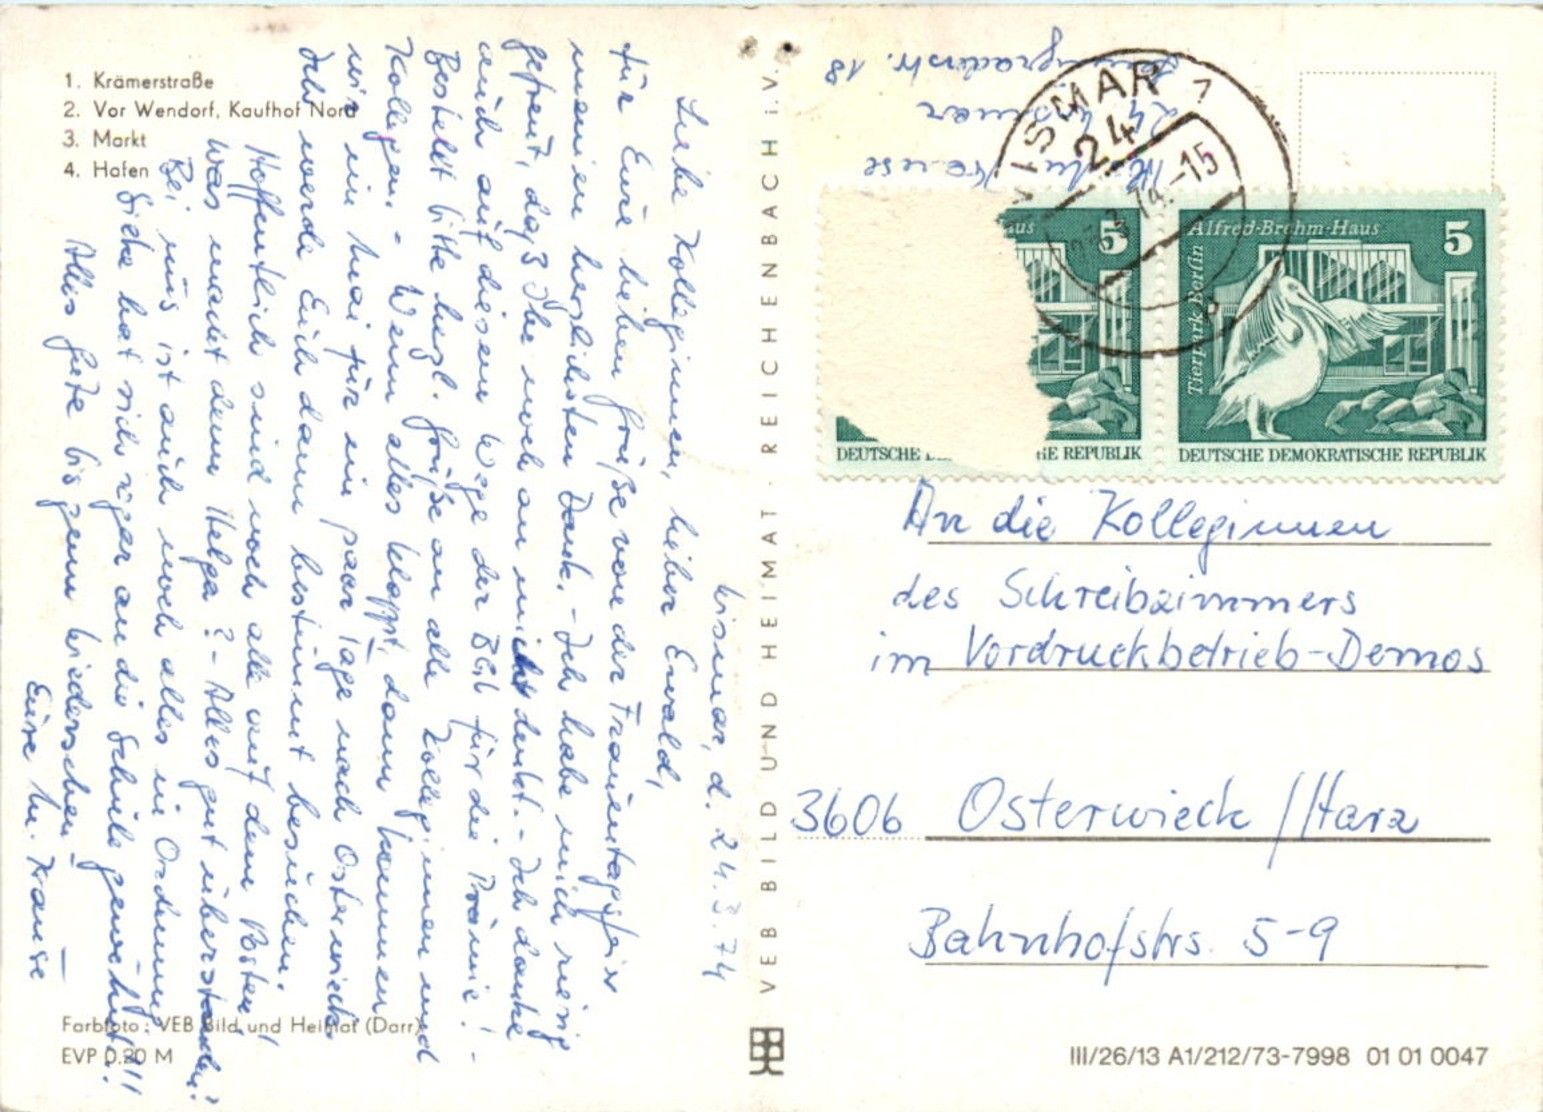 1. Krämerstraße
2. Vor Wendorf, Kaufhof Nord
3. Markt
4. Hafen
Wismar, d. 24.3.74
Liebe Kolleginnen, lieber Ewald,
für Eure lieben Grüße von der Frauentagsfeier
meinen herzlichsten Dank. - Ich habe mich riesig
gefreut, daß Ihr noch an mich denkt. - Ich danke
auch auf diesem Wege der BGL für die Prämie! -
Bestellt bitte herzl. Grüße an alle Kolleginnen und
Kollegen. - Wenn alles klappt, dann kommen
wir im Mai für ein paar Tage nach Osterwieck.
Ich werde Euch dann bestimmt besuchen.
Hoffentlich sind noch alle auf dem Posten!
Was macht denn Helga? - Alles gut überstanden?
Bei uns ist auch noch alles in Ordnung
hat sich sogar an die Schule gewöhnt!!!
Alles Gute bis zum Wiedersehen
Eure M. Krause
Farbfoto: VEB Bild und Heimat (Darr)
EVP 0.20 M
VEB BILD UND HEIMAT · REICHENBACH i.V.
Krause
24 Wismar
18
WISMAR 1
24
74.-15
b
Alfred-Brehm-Haus
Tierpark Berlin
5
DEUTSCHE DEMOKRATISCHE REPUBLIK
aus
5
DEUTSCHE D
HE REPUBLIK
An die Kolleginnen
des Schreibzimmers
im Vordruckbetrieb-Demos
3606 Osterwieck / Harz
Bahnhofstrs. 5-9
III/26/13 A1/212/73-7998 01 01 0047